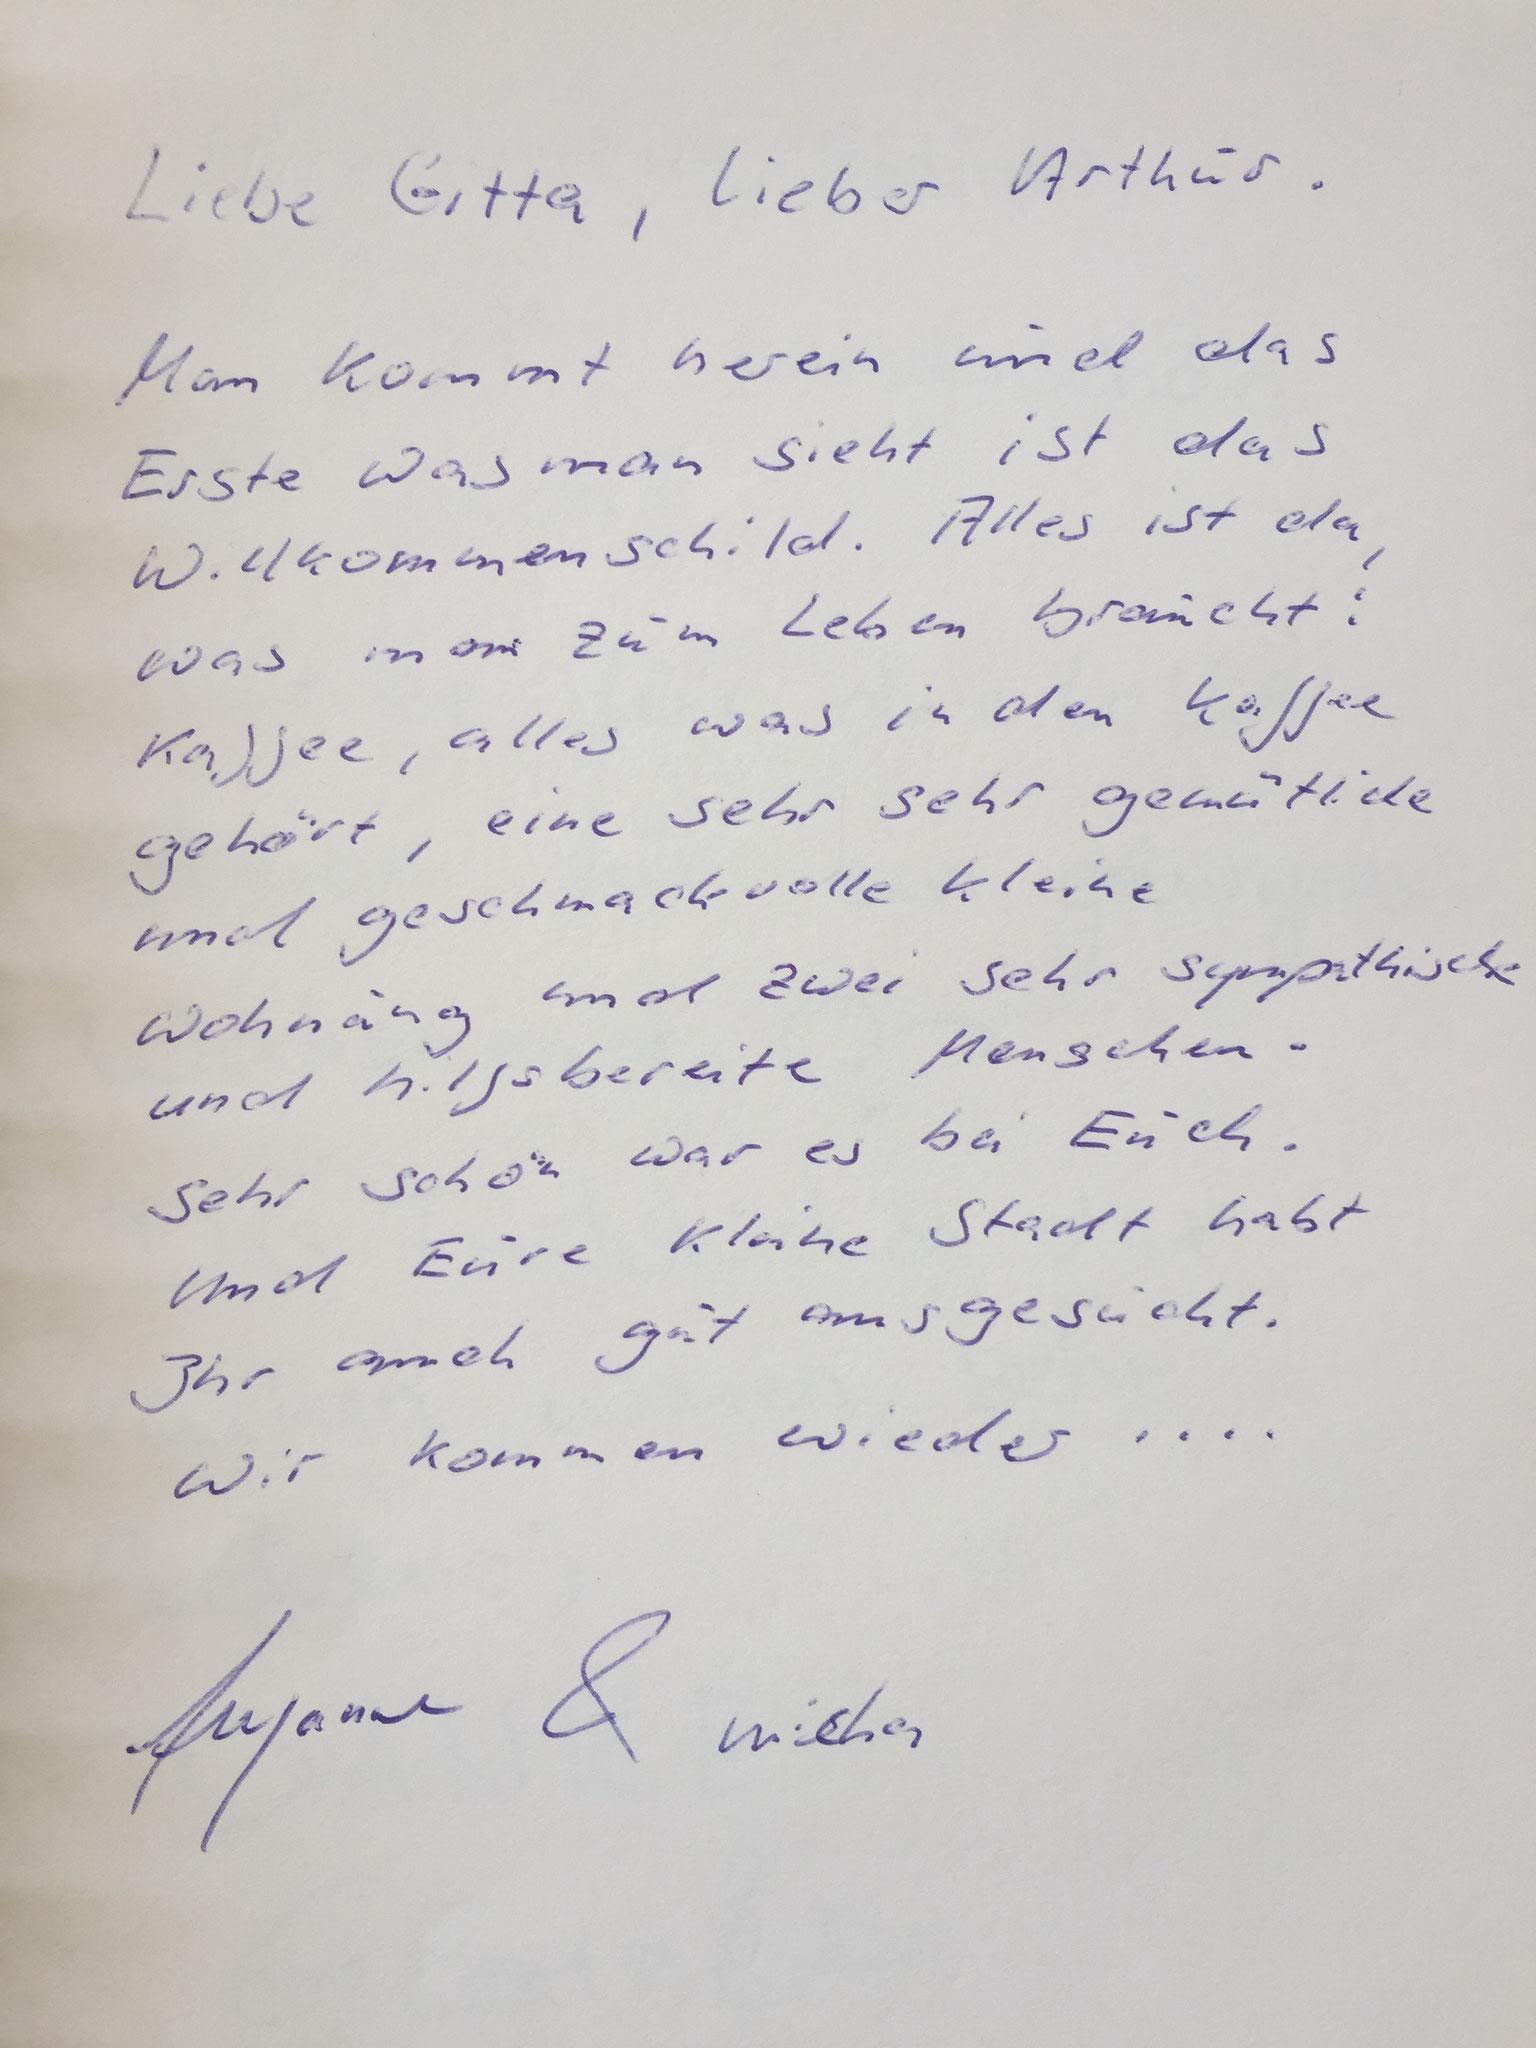 Liebe Gitta, lieber Arthur.
Man kommt herein und das
Erste was man sieht ist das
Willkommenschild. Alles ist da,
was man zum Leben braucht:
Kaffee, alles was in den Kaffee
gehört, eine sehr sehr gemütliche
und geschmackvolle kleine
Wohnung und zwei sehr sympathische
und hilfsbereite Menschen.
Sehr schön war es bei Euch.
Und Eure kleine Stadt habt
Ihr auch gut ausgesucht.
Wir kommen wieder ....
Susanne & Micha